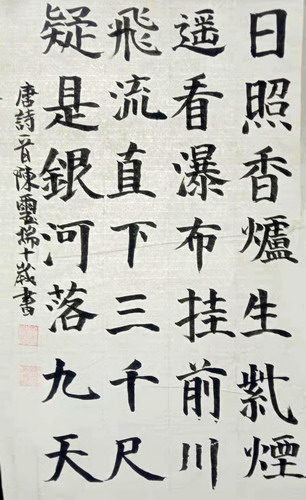 日照香爐生紫煙
遥看瀑布挂前川
飛流直下三千尺
疑是銀河落九天
唐詩一首陳雲瑞十歲書